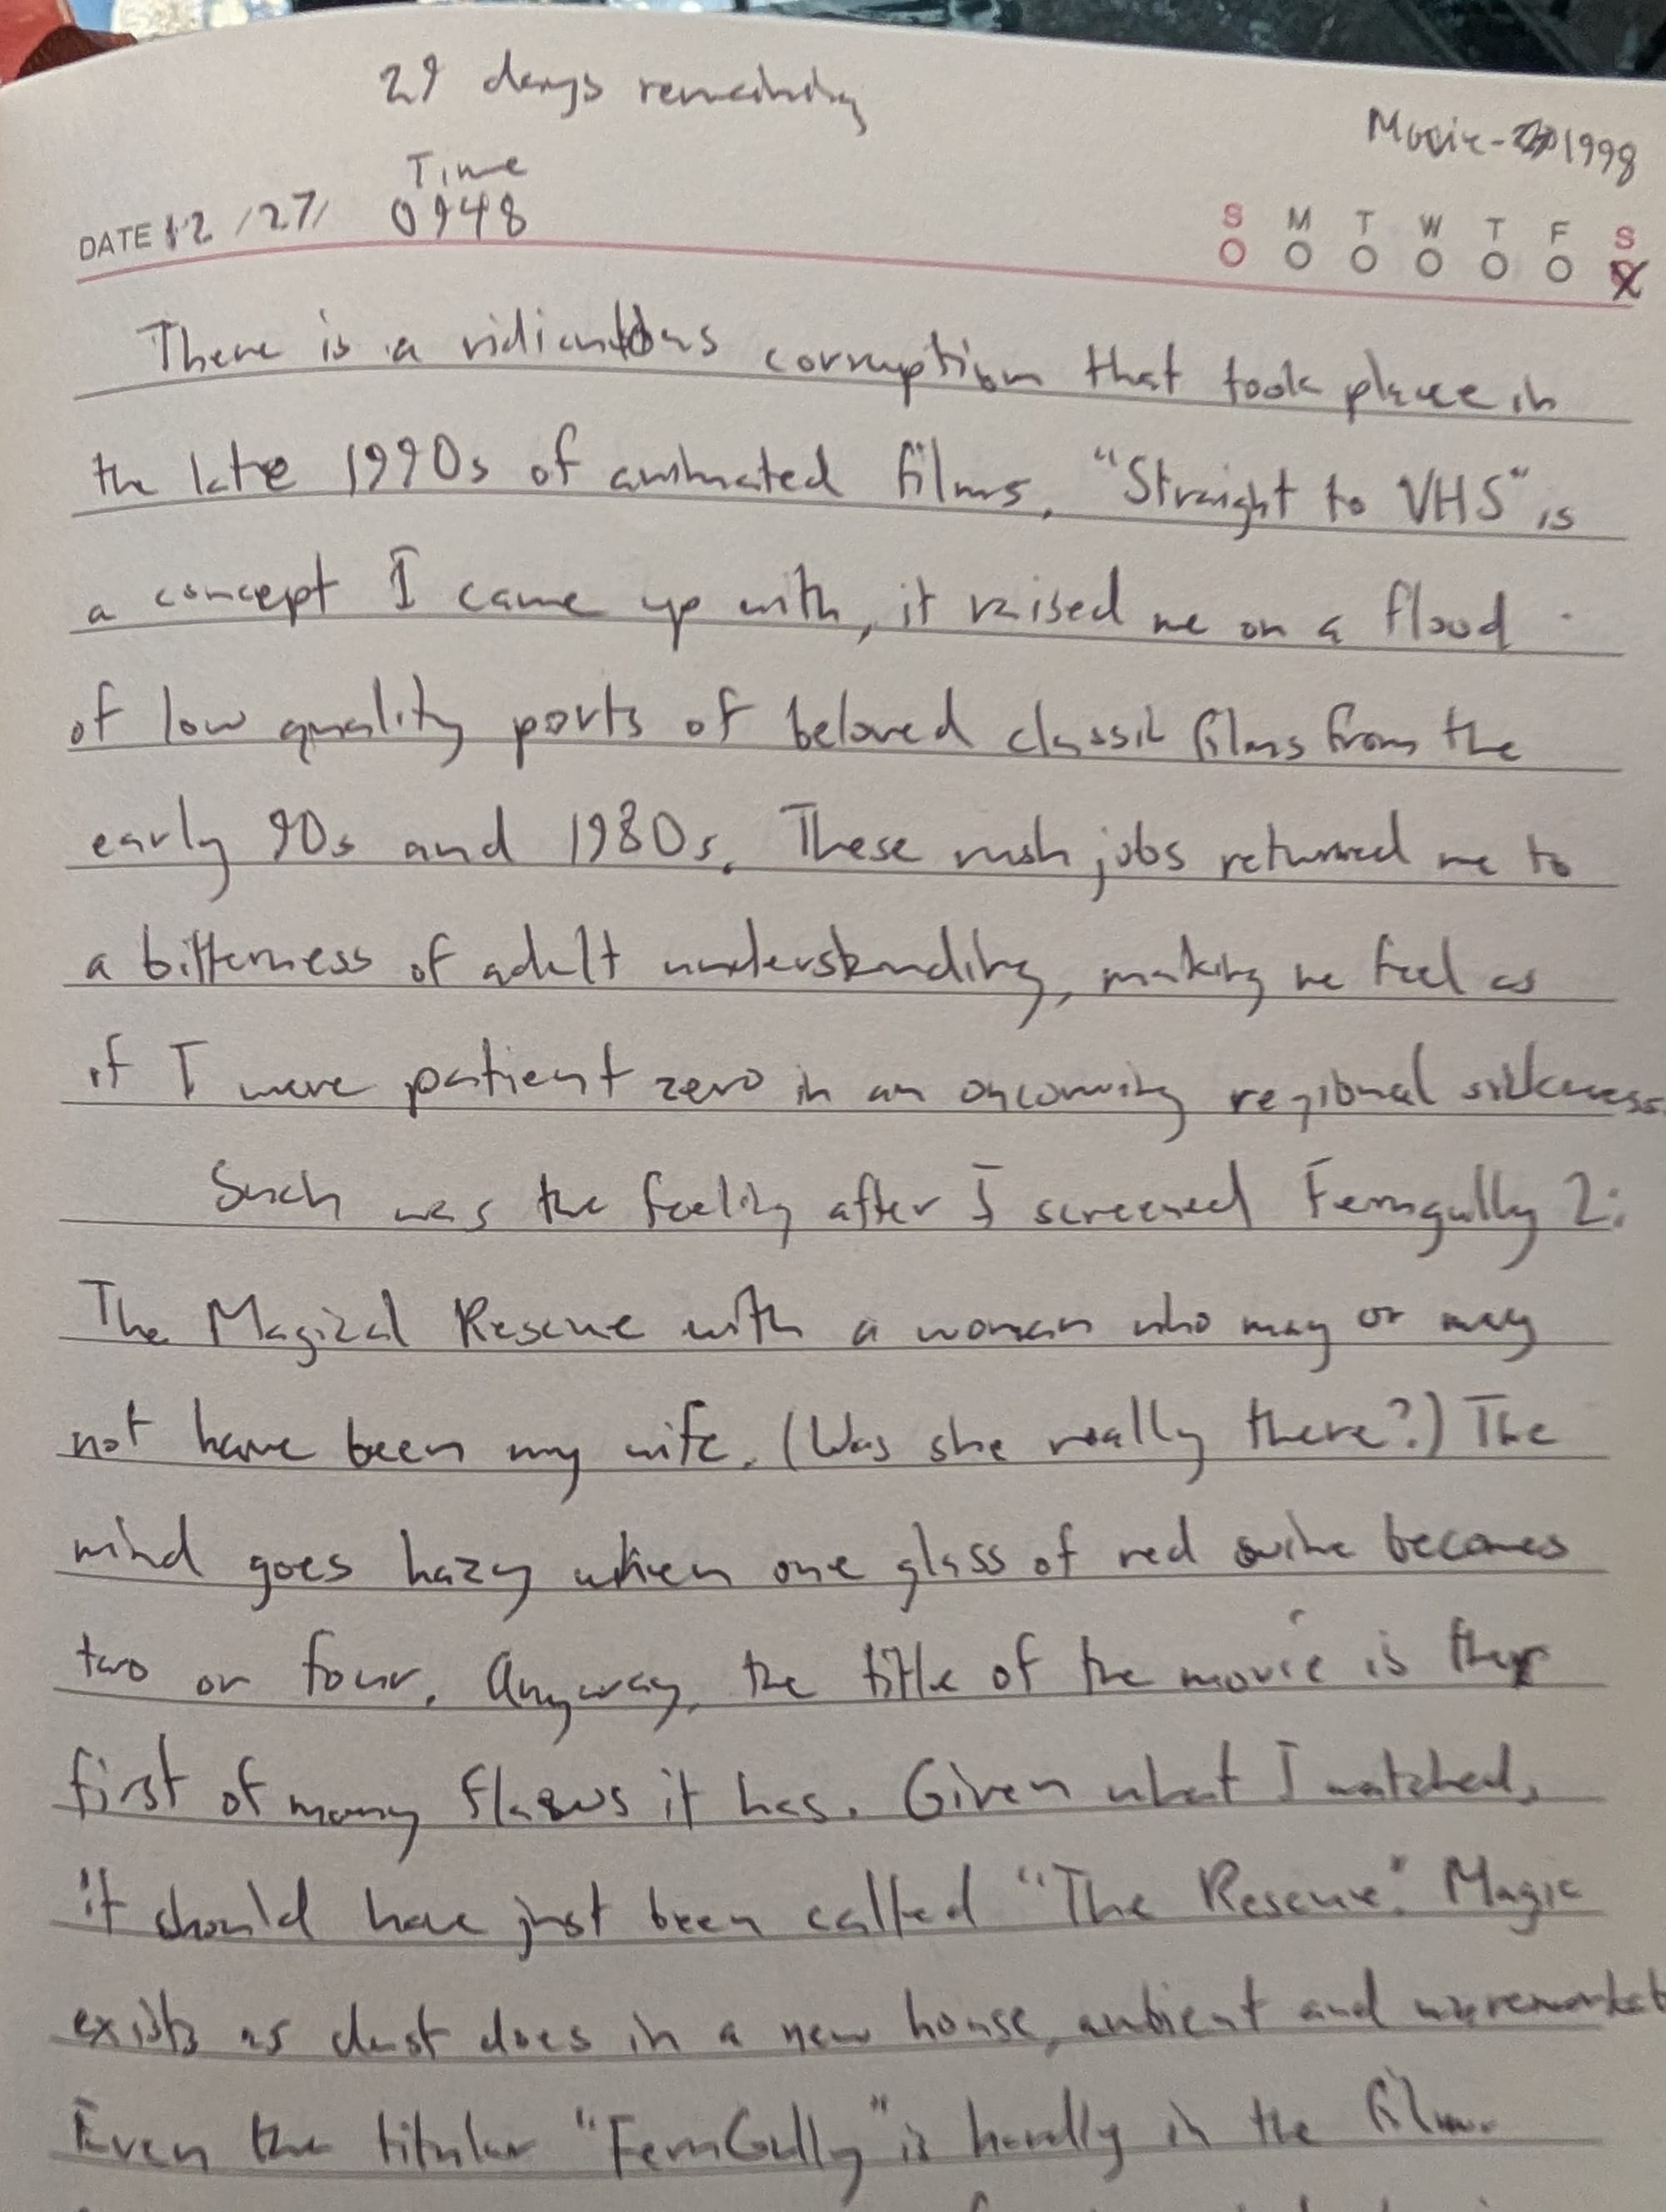 29 days remaining
Movie-1998
Time
DATE 12/27/ 0948
S M T W T F S
There is a ridiculous corruption that took place in
the late 1990s of animated films. "Straight to VHS" is
a concept I came up with, it raised me on a flood
of low quality ports of beloved classic films from the
early 90s and 1980s. These rush jobs returned me to
a bitterness of adult understanding, making me feel as
if I were patient zero in an oncoming regional sickness.
Such was the feeling after I screened Ferngully 2:
The Magical Rescue with a woman who may or may
not have been my wife. (Was she really there?) The
mind goes hazy when one glass of red wine becomes
two or four. Anyway, the title of the movie is the
first of many flaws it has. Given what I watched,
it should have just been called "The Rescue." Magic
exists as dust does in a new house, ambient and
Even the titular "FernGully" is hardly in the film.